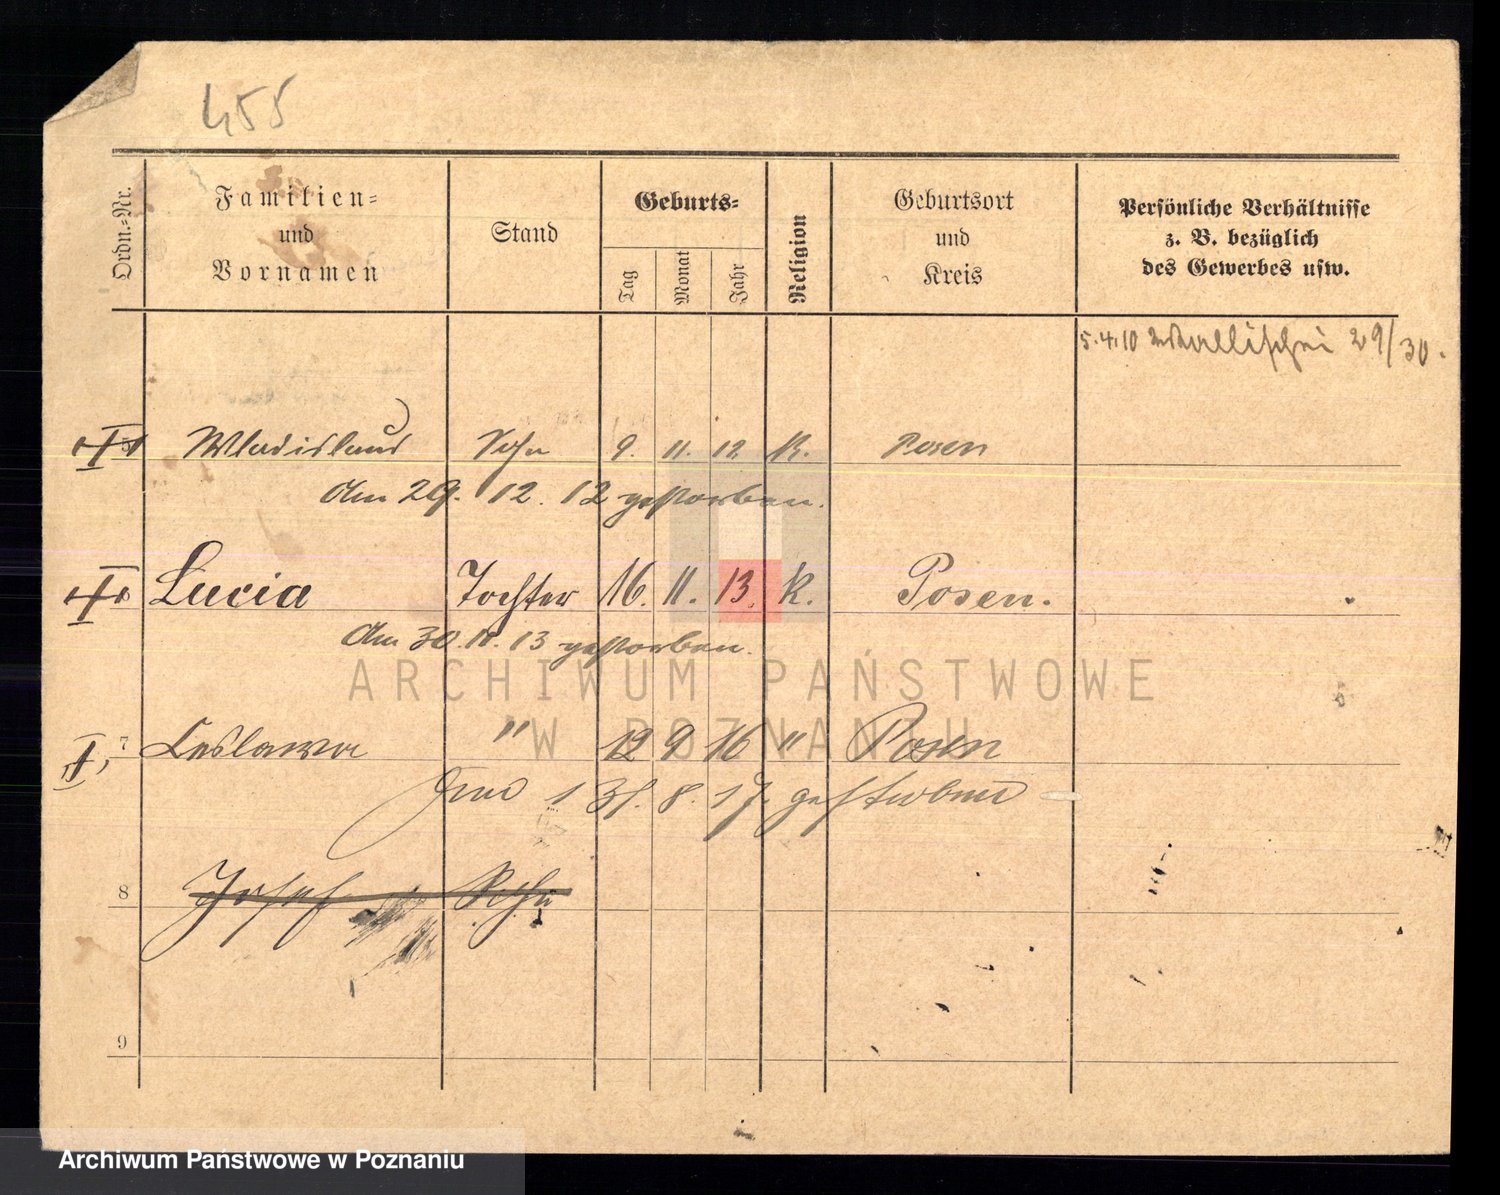 455
Ordn.-Nr.
Familien-
und
Vornamen
Stand
Geburts-
Tag
Monat
Jahr
Religion
Geburtsort
und
Kreis
Persönliche Verhältnisse
z. B. bezüglich
des Gewerbes usw.
5.4.10 Wallischei 29/30.
Wladislaus Sohn 9. 11. 12 K. Posen
Am 29. 12. 12 gestorben.
Lucia Tochter 16. 11. 13. K. Posen.
Am 30. 11. 13 gestorben.
7 Leslawa " 12 9 16 " Posen
31. 8. 17 gestorben
8 Josef Sohn
9
ARCHIWUM PAŃSTWOWE
W POZNANIU
Archiwum Państwowe w Poznaniu